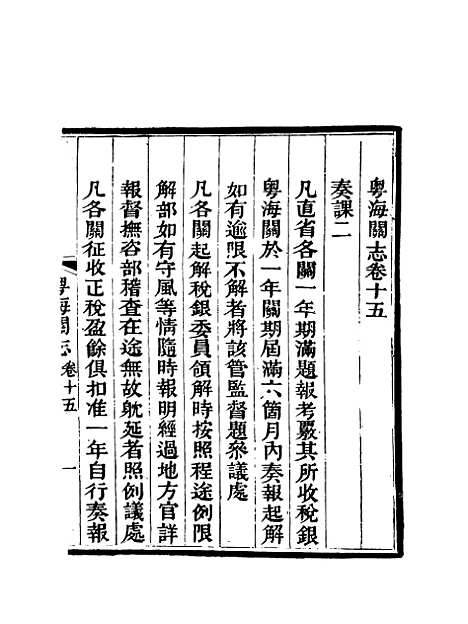 粵海關志卷十五
奏課二
凡直省各關一年期滿題報考覈其所收稅銀
粵海關於一年關期屆滿六箇月內奏報起解
如有逾限不解者將該管監督題參議處
凡各關起解稅銀委員領解時按照程途例限
解部如有守風等情隨時報明經過地方官詳
報督撫咨部稽查在途無故躭延者照例議處
凡各關征收正稅盈餘俱扣准一年自行奏報
粵海關志 卷十五 一